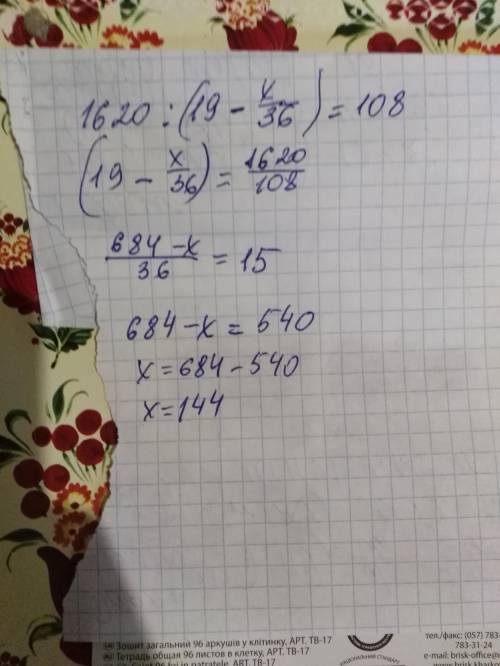 1620 : (19 - x/36) = 108
(19 - x/36) = 1620/108
684 - x/36 = 15
684 - x = 540
x = 684 - 540
x = 144
Зошит загальний 96 аркушів у клітинку, АРТ. ТВ-17
Тетрадь общая 96 листов в клетку, АРТ. ТВ-17
тел./факс: (057) 783-
783-31-24
e-mail: brisk-office@